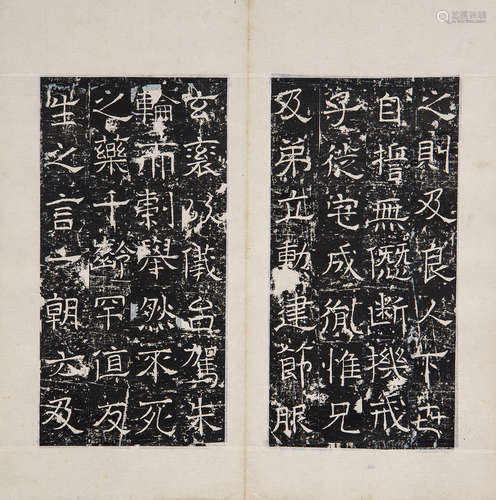 之則及良人下世
自誓無慝斷機戒
子徙宅成胤惟兄
及弟立勳建節服
玄袞以儀台駕朱
輪而刺舉然不死
之藥千齡罕值反
生之言一朝及